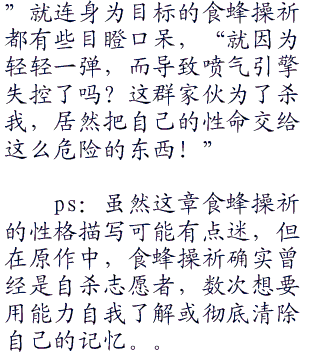 ”就连身为目标的食蜂操祈
都有些目瞪口呆，“就因为
轻轻一弹，而导致喷气引擎
失控了吗？这群家伙为了杀
我，居然把自己的性命交给
这么危险的东西！”
ps：虽然这章食蜂操祈
的性格描写可能有点迷，但
在原作中，食蜂操祈确实曾
经是自杀志愿者，数次想要
用能力自我了解或彻底清除
自己的记忆。。